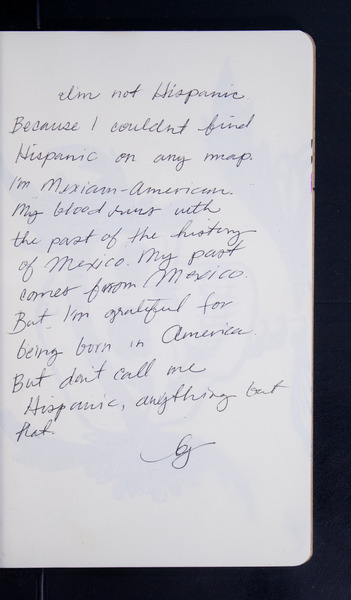 I'm not Hispanic
Because I couldnt find
Hispanic on any map.
I'm Mexican-American.
My blood runs with
the past of the history
of Mexico. My past
comes from Mexico.
But I'm grateful for
being born in America.
But don't call me
Hispanic, anything but
that.